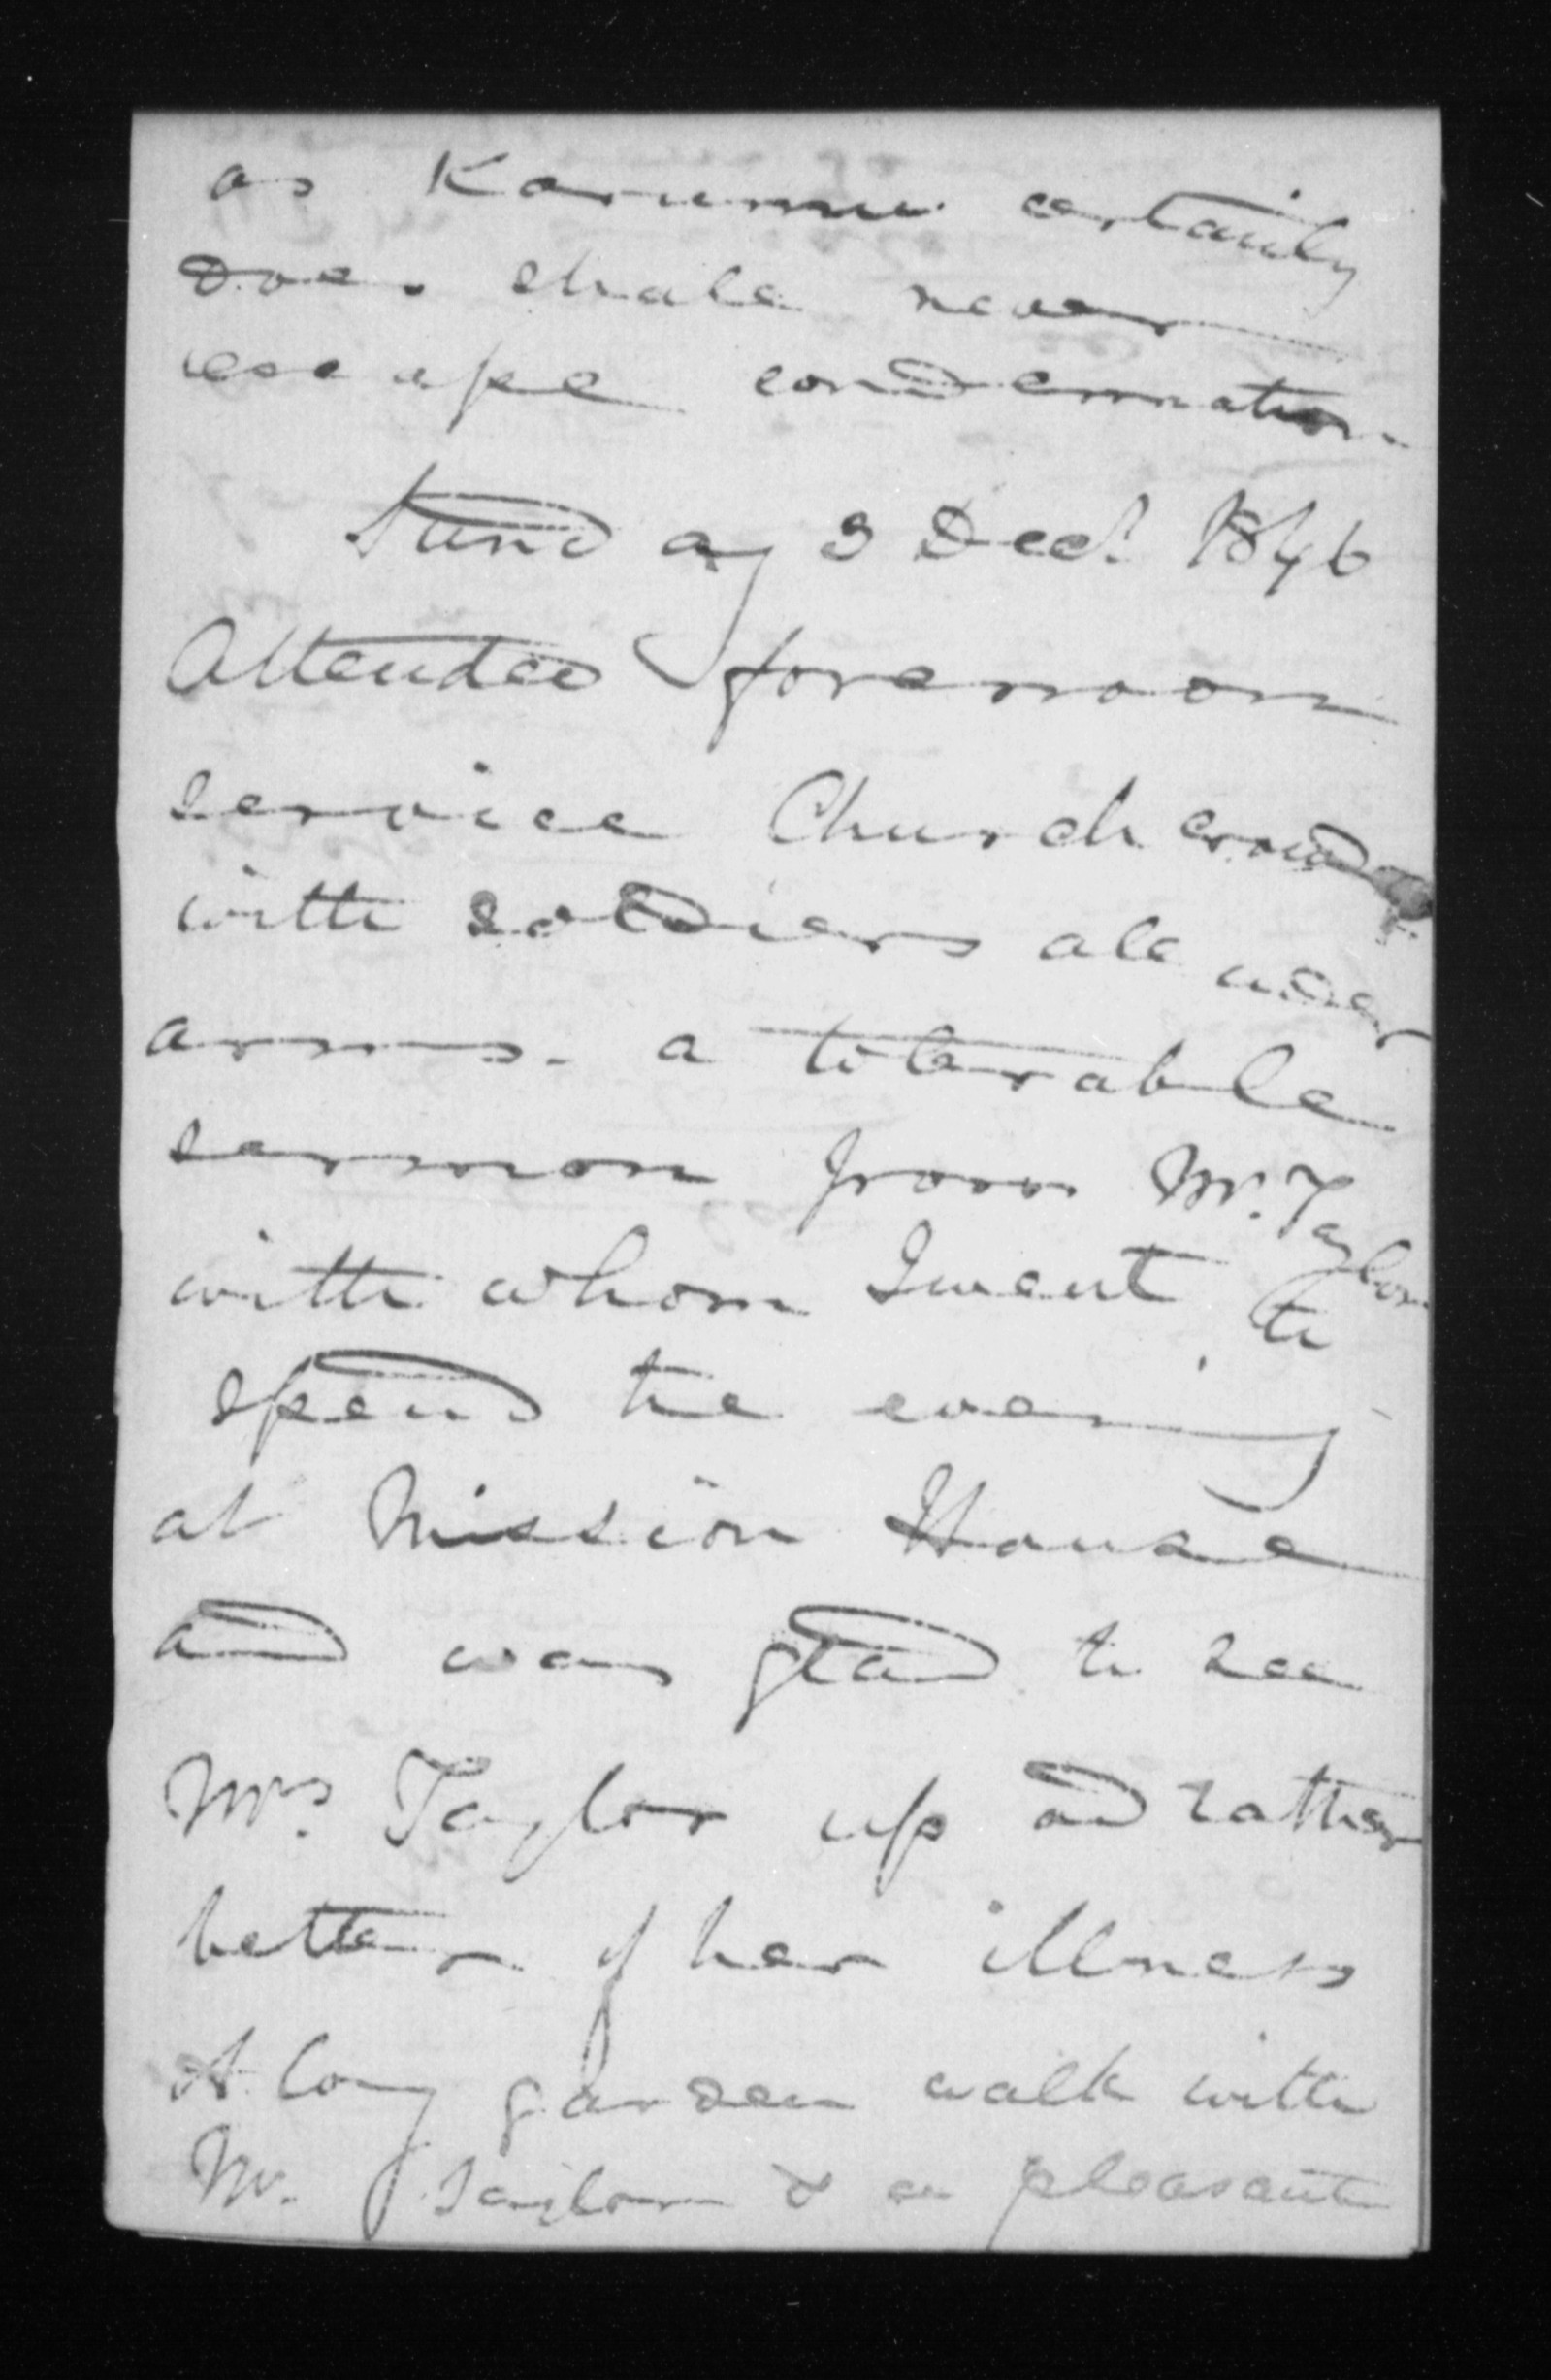 as Karumu certainly
does shall never
escape condemnation
Sunday 3 Decr 1846
Attended forenoon
service Church crowded
with soldiers all under
arms. a tolerable
sermon from Mr. Taylor
with whom I went to
spend the evening
at Mission House
and was glad to see
Mrs Taylor up and rather
better of her illness
A long garden walk with
Mr. Taylor & a pleasant